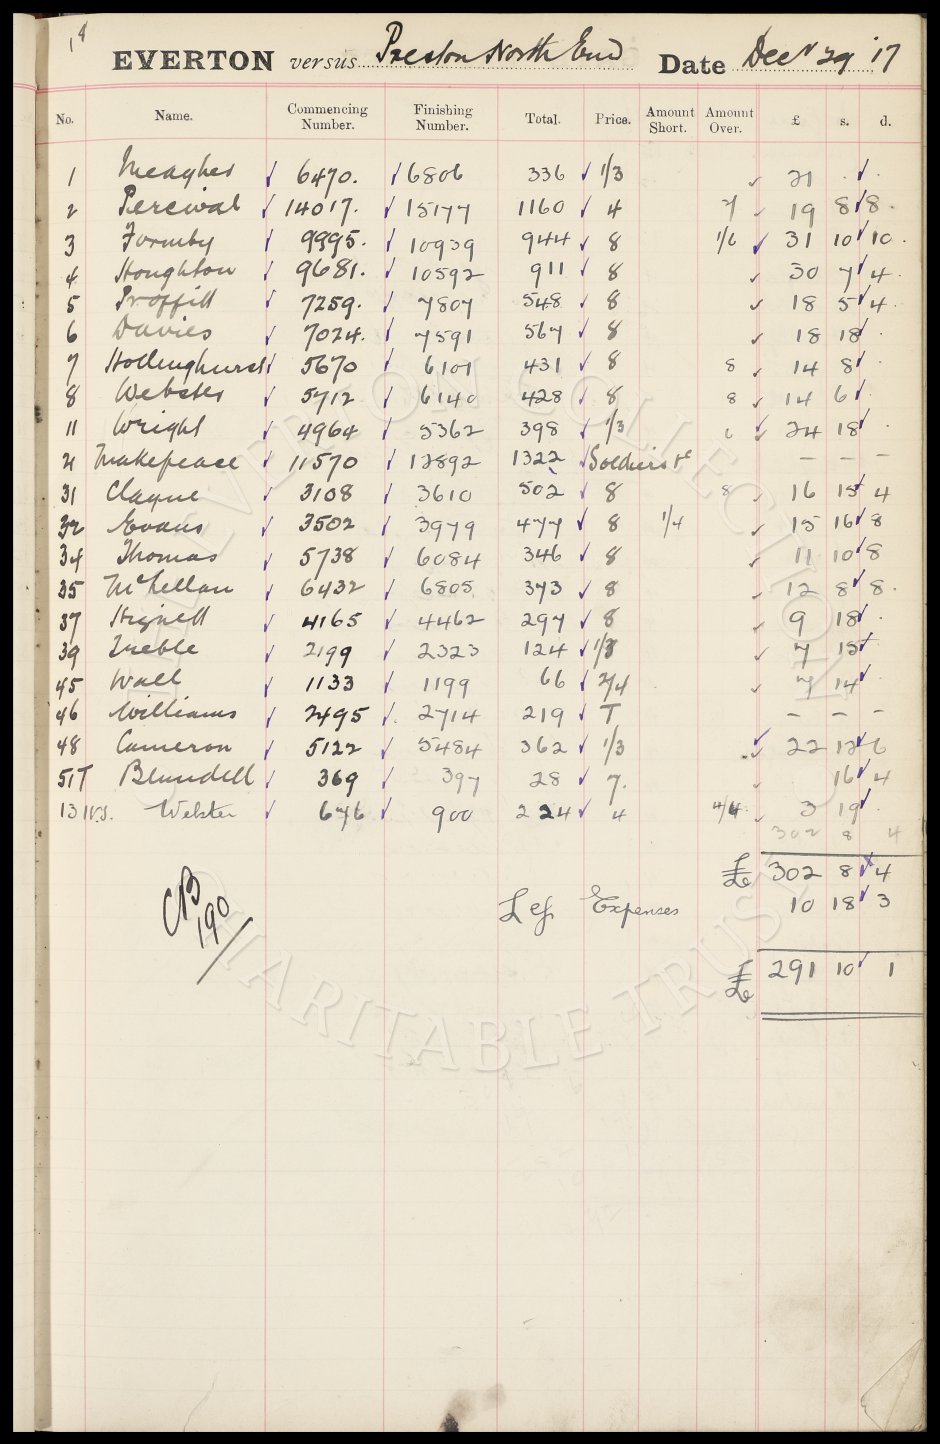 14
EVERTON versus Preston North End Date Decr 29 '17
No. Name. Commencing Number. Finishing Number. Total. Price. Amount Short. Amount Over. £ s. d.
1 Meagher 6470. 6806 336 1/3 21 . .
2 Percival 14017. 15177 1160 4 7 19 8 8.
3 Formby 9995. 10939 944 8 1/6 31 10 10.
4 Houghton 9681. 10592 911 8 30 7 4.
5 Proffitt 7259. 7807 548 8 18 5 4.
6 Davies 7024. 7591 567 8 18 18 .
7 Hollinghurst 5670 6101 431 8 8 14 8 .
8 Webster 5712 6140 428 8 8 14 6 .
11 Wright 4964 5362 398 1/3 6 24 18 .
21 Makepeace 11570 12892 1322 Soldiers – – –
31 Clague 3108 3610 502 8 8 16 15 4
32 Evans 3502 3979 477 8 1/4 15 16 8
34 Thomas 5738 6084 346 8 11 10 8
35 McLellan 6432 6805 373 8 12 8 8.
37 Hignett 4165 4462 297 8 9 18 .
39 Treble 2199 2323 124 1/3 7 15
45 Wall 1133 1199 66 2/4 7 14 .
46 Williams 2495 2714 219 T – – –
48 Cameron 5122 5484 362 1/3 22 12 6
51T Blundell 369 397 28 7. 16 4
13 Webster 676 900 224 4 4/4 3 19 .
302 8 4
£ 302 8 4
Less Expenses 10 18 3
£ 291 10 1
CB 190
EVERTON COLLECTION
CHARITABLE TRUST